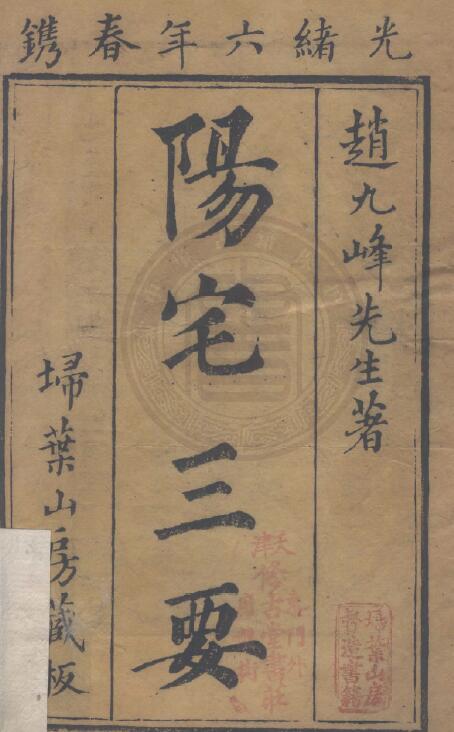 光緒六年春鐫
趙九峰先生著
陽宅三要
埽葉山房藏板
天津
修古堂書莊
埽葉山房
督造書籍